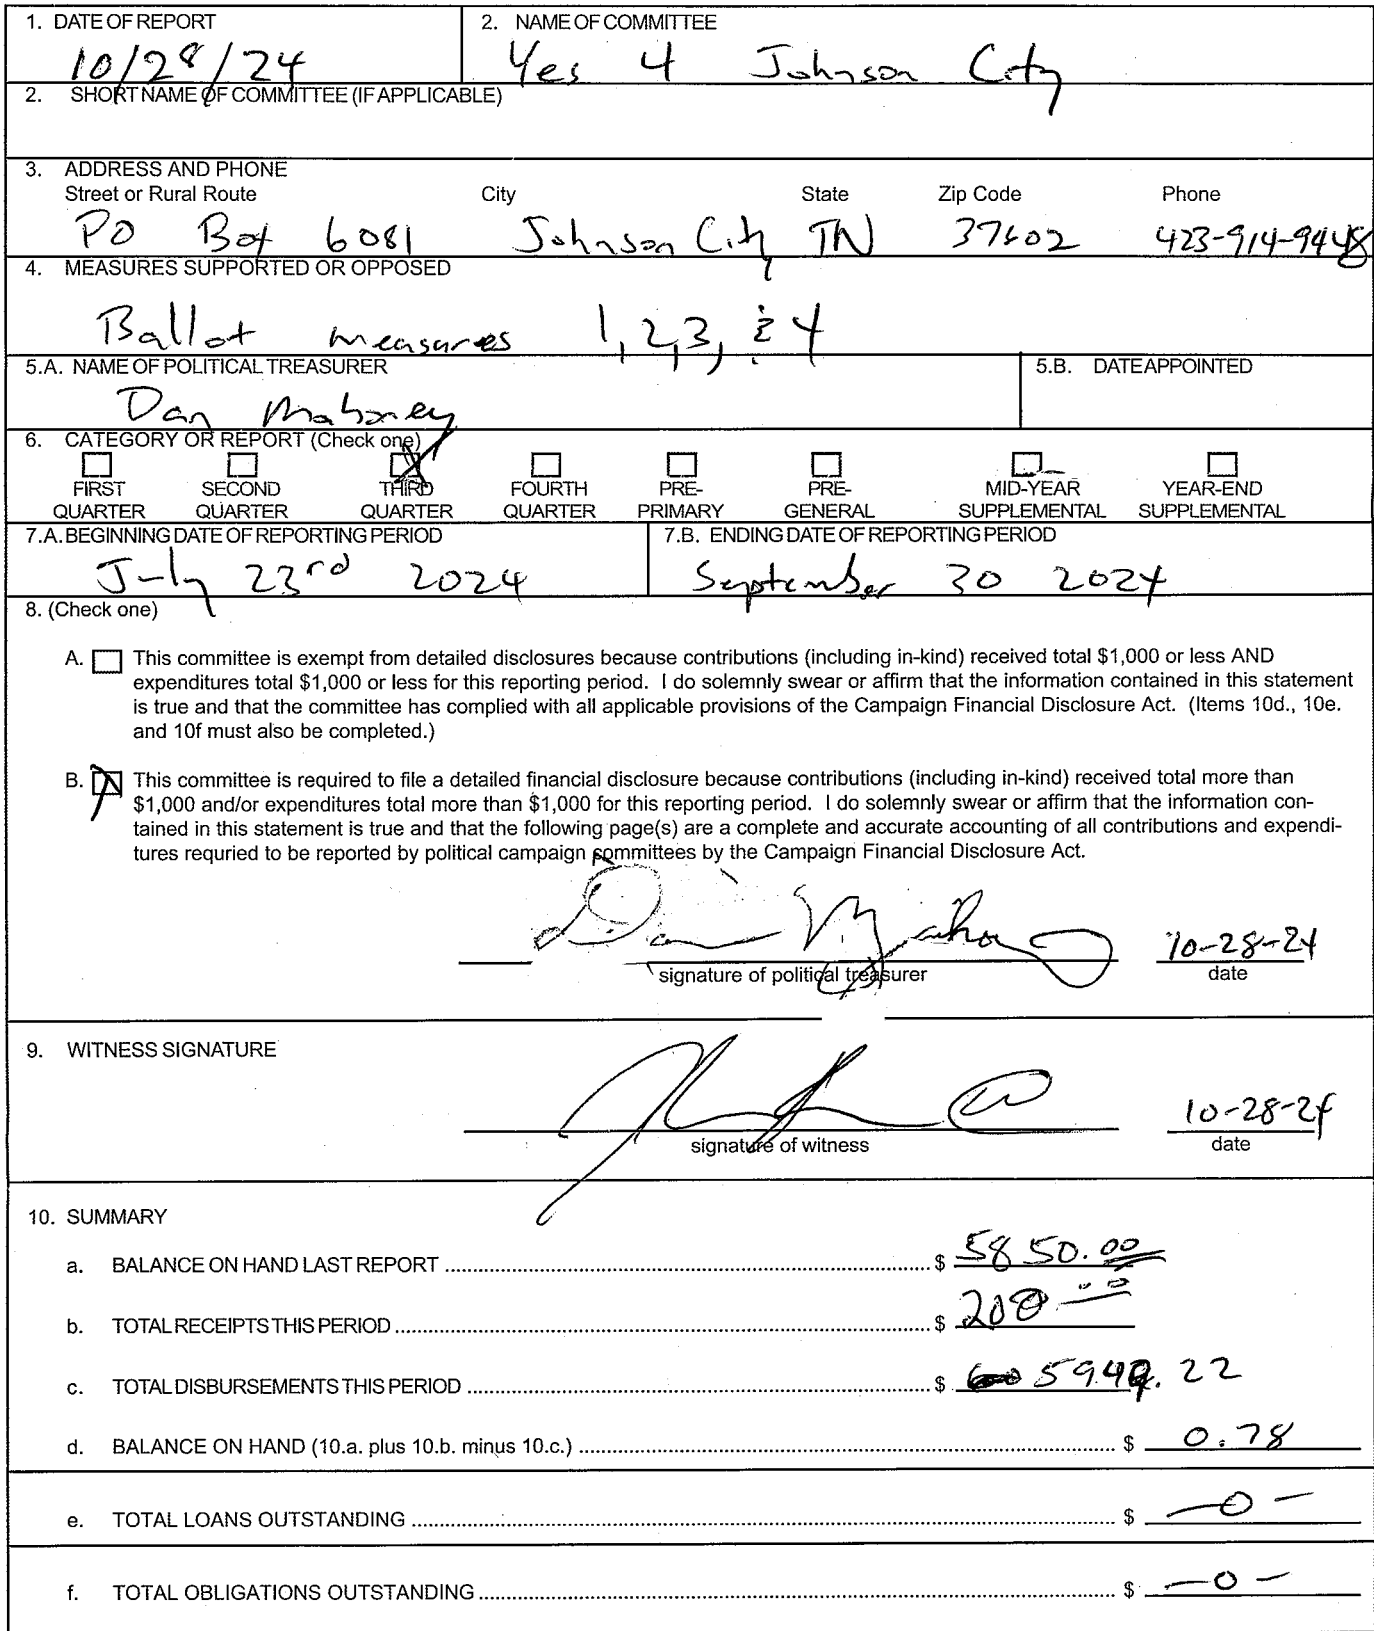 1. DATE OF REPORT
10/28/24
2. NAME OF COMMITTEE
Yes 4 Johnson City
2. SHORT NAME OF COMMITTEE (IF APPLICABLE)
3. ADDRESS AND PHONE
Street or Rural Route City State Zip Code Phone
PO Box 6081 Johnson City TN 37602 423-914-9448
4. MEASURES SUPPORTED OR OPPOSED
Ballot measures 1, 2, 3, & 4
5.A. NAME OF POLITICAL TREASURER
Dan Mahoney
5.B. DATE APPOINTED
6. CATEGORY OR REPORT (Check one)
FIRST QUARTER
SECOND QUARTER
THIRD QUARTER
FOURTH QUARTER
PRE-PRIMARY
PRE-GENERAL
MID-YEAR SUPPLEMENTAL
YEAR-END SUPPLEMENTAL
7.A. BEGINNING DATE OF REPORTING PERIOD
July 23rd 2024
7.B. ENDING DATE OF REPORTING PERIOD
September 30 2024
8. (Check one)
A. This committee is exempt from detailed disclosures because contributions (including in-kind) received total $1,000 or less AND
expenditures total $1,000 or less for this reporting period. I do solemnly swear or affirm that the information contained in this statement
is true and that the committee has complied with all applicable provisions of the Campaign Financial Disclosure Act. (Items 10d., 10e.
and 10f must also be completed.)
B. This committee is required to file a detailed financial disclosure because contributions (including in-kind) received total more than
$1,000 and/or expenditures total more than $1,000 for this reporting period. I do solemnly swear or affirm that the information con-
tained in this statement is true and that the following page(s) are a complete and accurate accounting of all contributions and expendi-
tures requried to be reported by political campaign committees by the Campaign Financial Disclosure Act.
Dan Mahoney 10-28-24
signature of political treasurer date
9. WITNESS SIGNATURE
10-28-24
signature of witness date
10. SUMMARY
a. BALANCE ON HAND LAST REPORT $ 5850.00
b. TOTAL RECEIPTS THIS PERIOD $
c. TOTAL DISBURSEMENTS THIS PERIOD $
d. BALANCE ON HAND (10.a. plus 10.b. minus 10.c.) $ 0.78
e. TOTAL LOANS OUTSTANDING $ -0-
f. TOTAL OBLIGATIONS OUTSTANDING $ -0-